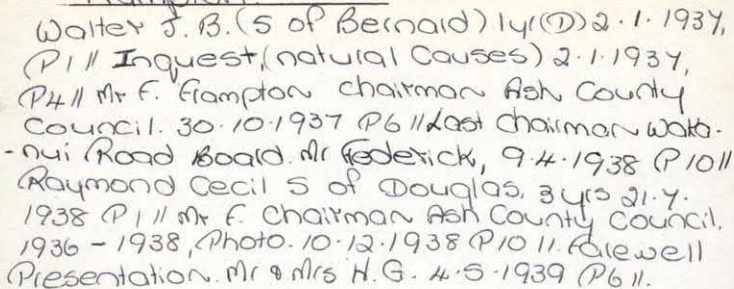 Walter J.B. (S of Bernard) 1yr (D) 2.1.1937,
(P1 // Inquest, (natural Causes) 2.1.1937,
(P4 // Mr F. Frampton chairman Ash County
Council. 30.10.1937 (P6 // Last Chairman Waka-
-nui Road Board. Mr Federick, 9.4.1938 (P10 //
Raymond Cecil S of Douglas, 3yrs 21.7.
1938 (P1 // Mr F. Chairman Ash County Council,
1936 - 1938, Photo. 10.12.1938 (P10 //. Farewell
Presentation. Mr & Mrs H.G. 4.5.1939 (P6 //.